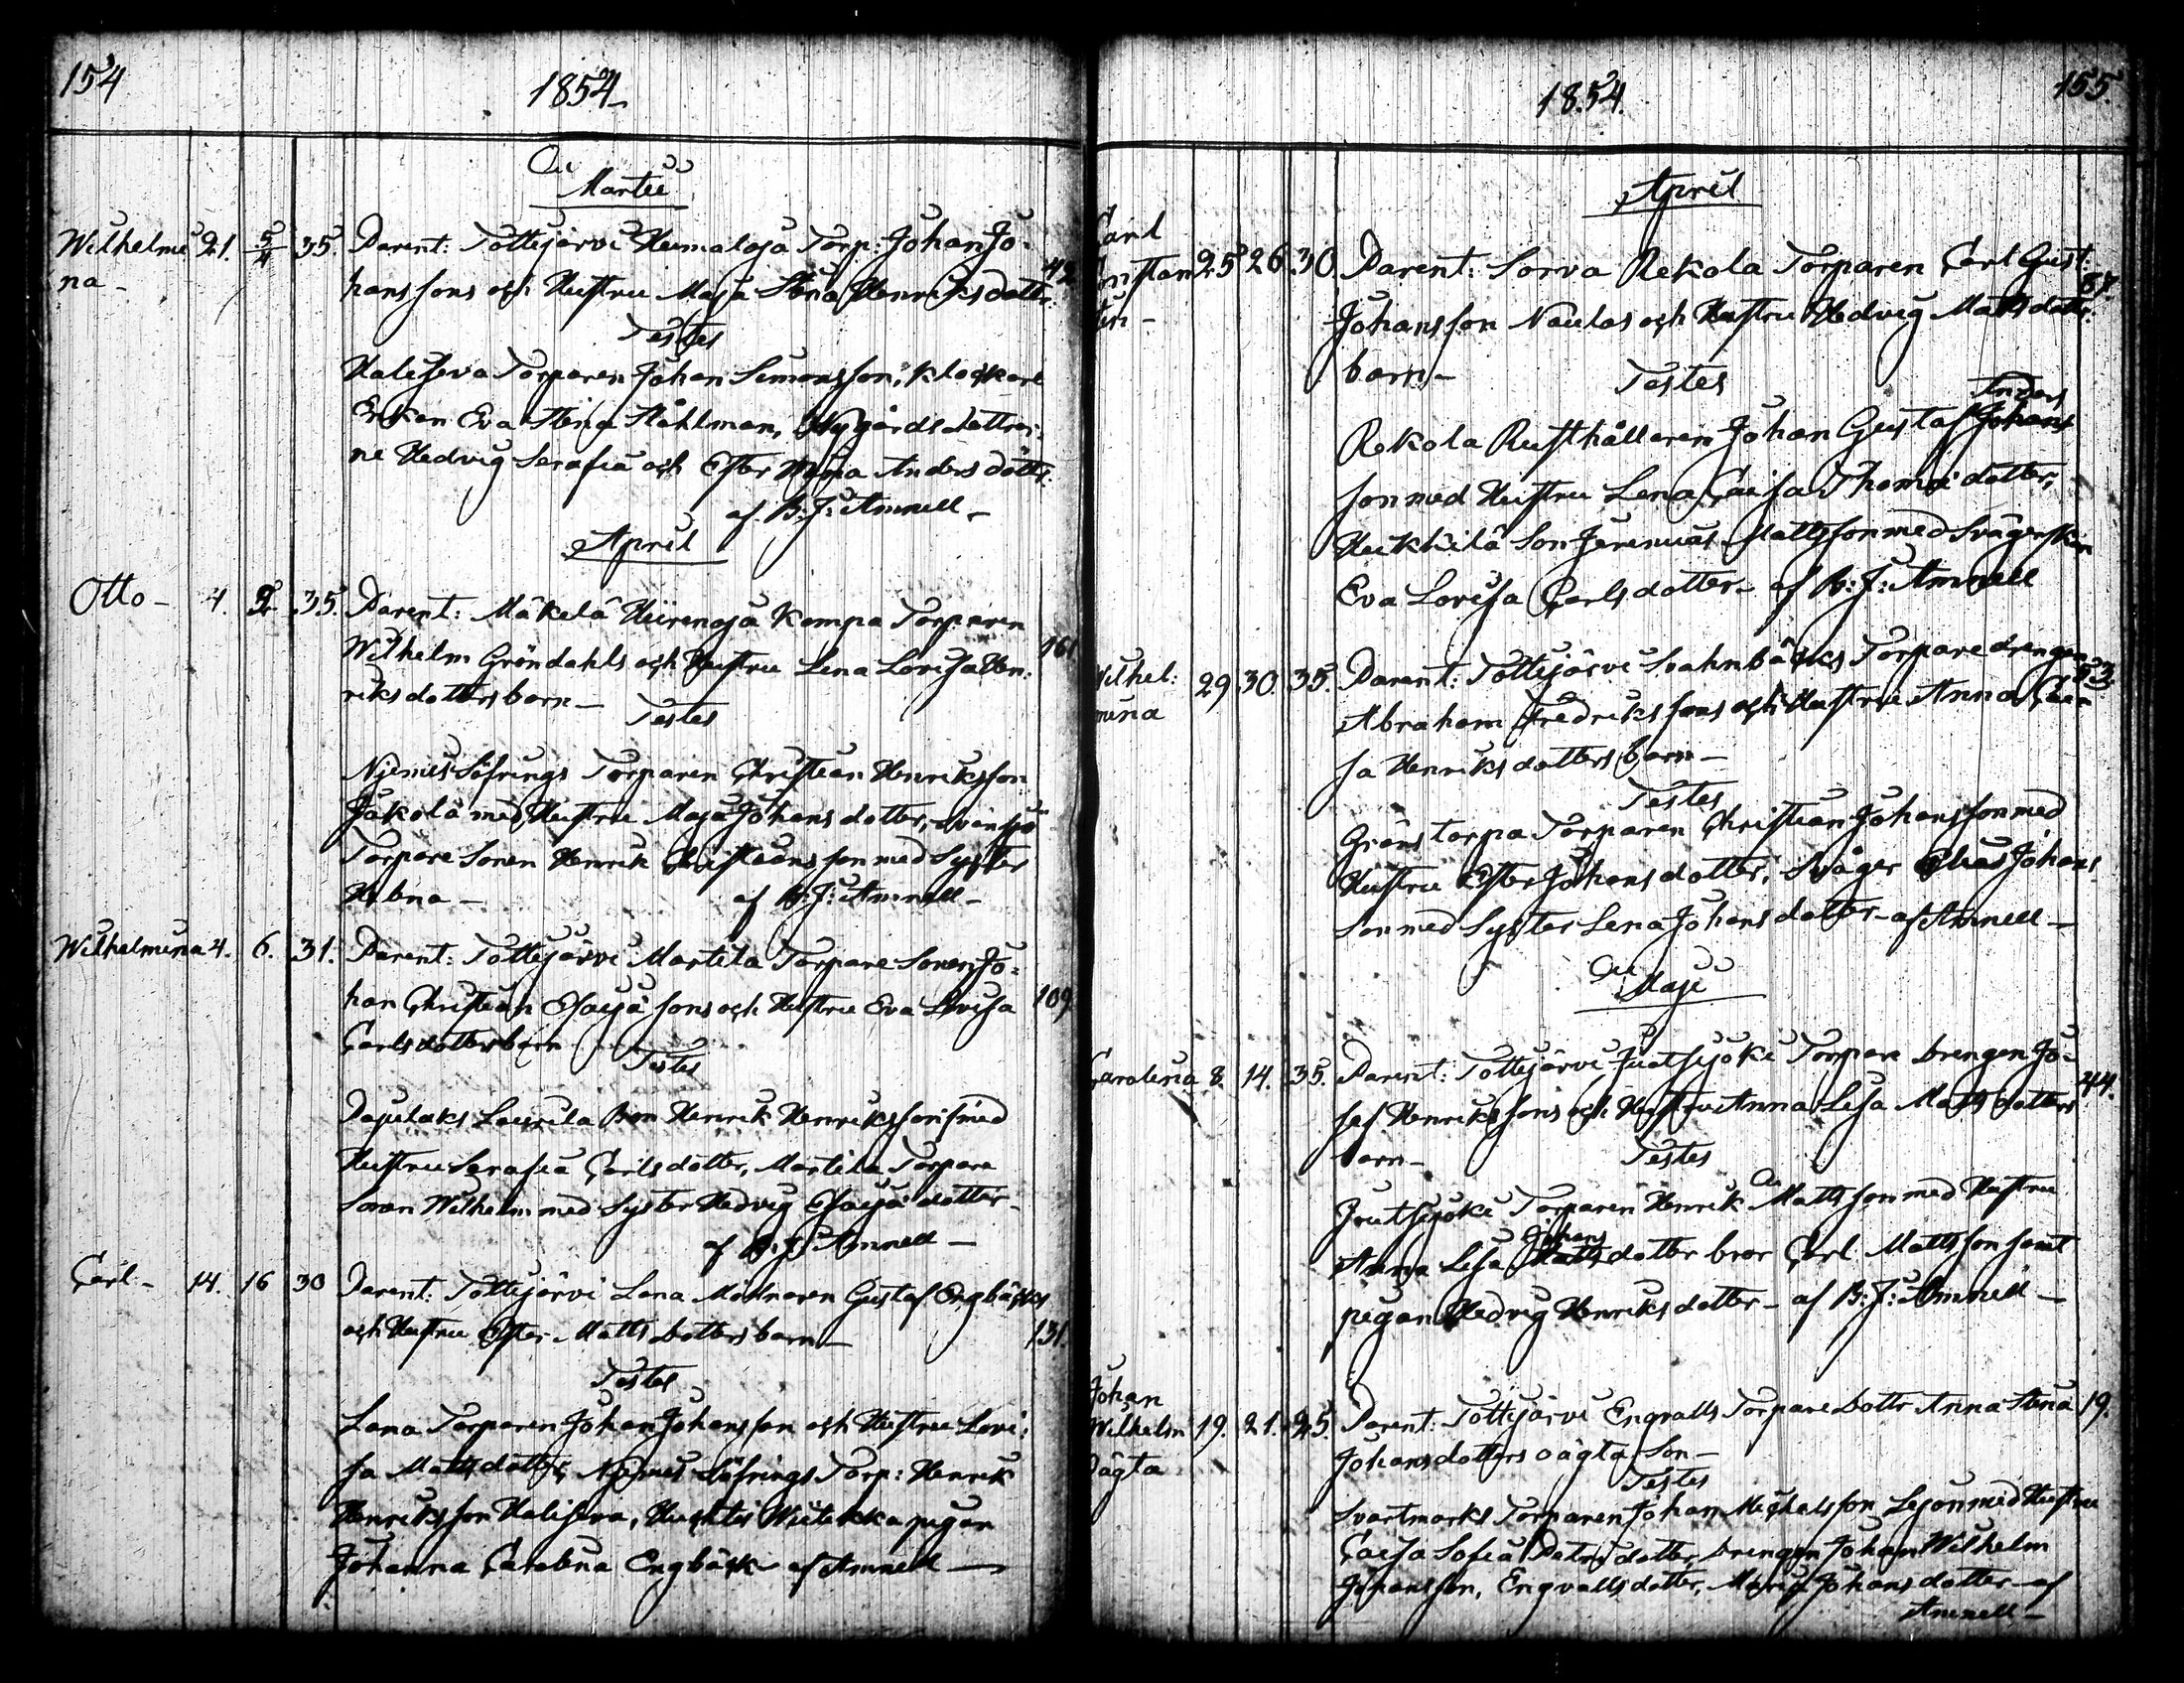 154
1854
Martii
Wilhelmi 21. 5/4 35. Parent: Tottijärvi Heimaloja Torp: Johan Jo-
na- hanssons och Hustru Maja Stina Henriksdotter. 42
Testes
Haliseva Torparen Johan Simonsson, Klockare
Enkan Eva Stina Ståhlman, Nygårds dottrar-
ne Hedvig Serafia och Ester Anders dött:
af B:J: Amnell-
April
Otto- 4. 5. 35. Parent: Mäkelä Kompa Torparen
Wilhelm Gröndahls och Hustru Lena Lovisa Hen- 161
riksdotters barn-
Testes
Njemis Söfrings Torparen Christian Henriksson
Jakola med Hustru Maja Johansdotter,
Torpare Sonen Henrik Christiansson med Syster
Helena- af B:J: Amnell-
Wilhelmina 4. 6. 31. Parent: Tottijärvi Martila Torpare Sonen Jo-
han Christian Esaiæ sons och Hustru Eva Lovisa 109
Carlsdotters barn
Testes
Laurila Bon Henrik Henriksson med
Hustru Serafia Carlsdotter, Martila Torpare
Sonen Wilhelm med Syster Hedvig Esaiæ dotter-
af B:J: Amnell-
Carl- 14. 16 30 Parent: Tottijärvi Lana Mölnaren Gustaf Engbäcks
och Hustru Ester Mattsdotters barn- 131.
Testes
Lana Torparen Johan Johansson och Hustru Lovi-
sa Mattsdotter, Njemis Söfrings Torp: Henrik
Henriksson Haliseva, pigan
Johanna Carolina Engbäck af Amnell-
155.
1854.
April
Carl
25 26 30. Parent: Sorva Rekola Torparen Carl Gust: 87.
Johansson Naulas och Hustru Hedvig Mattsdotter.
barn-
Testes
Anders
Rekola Rusthållaren Johan Gustaf Johans
son med Hustru Lena Caisa Thomædotter,
Heikkilä Son Jeremias Mattsson med Svägerskan
Eva Lovisa Carlsdotter- af B:J: Amnell
Wilhel: 29 30. 35. Parent: Tottijärvi Svahnbäcks Torpare drengen 53
mina Abraham Fredrikssons och Hustru Anna Cai-
sa Henriksdotters barn-
Testes
Gränstorpa Torparen Christian Johansson med
Hustru Ester Johansdotter, Svåger Elias Johans
son med Syster Lena Johansdotter- af Amnell-
Maji
Carolina 8. 14. 35. Parent: Tottijärvi Juotsijoki Torpare Drengen Jo- 44.
sef Henrikssons och Hustru Anna Lisa Mattsdotters
barn-
Testes
Juotsijoki Torparen Henrik Mattsson med Hustru
Johans
Anna Lisa Mattsdotter bror Carl Mattsson samt
pigan Hedvig Henriksdotter- af B:J: Amnell-
Johan
Wilhelm 19. 21. 25. Parent: Tottijärvi Engvalls Torpare Dottr Anna Stina 19.
Oägta Johansdotters oägta Son-
Testes
Svartmarks Torparen Johan Michelsson Lejon med Hustru
Caisa Sofia Petersdotter, drengen Johan Wilhelm
Johansson, Engvallsdotter, Maria Johansdotter- af
Amnell-